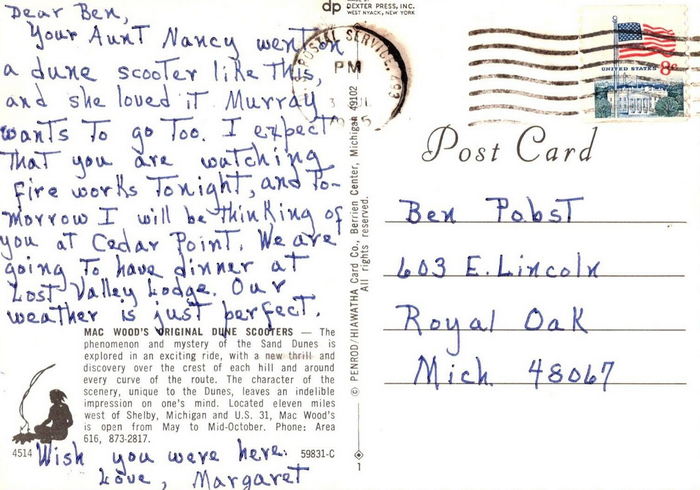 Dear Ben,
Your Aunt Nancy went on
a dune scooter like this,
and she loved it Murray
wants to go too. I expect
that you are watching
fire works tonight, and to-
morrow I will be thinking of
you at Cedar Point. We are
going to have dinner at
Lost Valley Lodge. Our
weather is just perfect.
MAC WOOD'S ORIGINAL DUNE SCOOTERS — The
phenomenon and mystery of the Sand Dunes is
explored in an exciting ride, with a new thrill and
discovery over the crest of each hill and around
every curve of the route. The character of the
scenery, unique to the Dunes, leaves an indelible
impression on one's mind. Located eleven miles
west of Shelby, Michigan and U.S. 31, Mac Wood's
is open from May to Mid-October. Phone: Area
616, 873-2817.
4514
59831-C
Wish you were here.
Love, Margaret
dp
DEXTER PRESS, INC.
WEST NYACK, NEW YORK
© PENROD/HIAWATHA Card Co., Berrien Center, Michigan 49102
All rights reserved.
1
POSTAL SERVICE
PM
UNITED STATES 8c
Post Card
Ben Pabst
603 E. Lincoln
Royal Oak
Mich. 48067